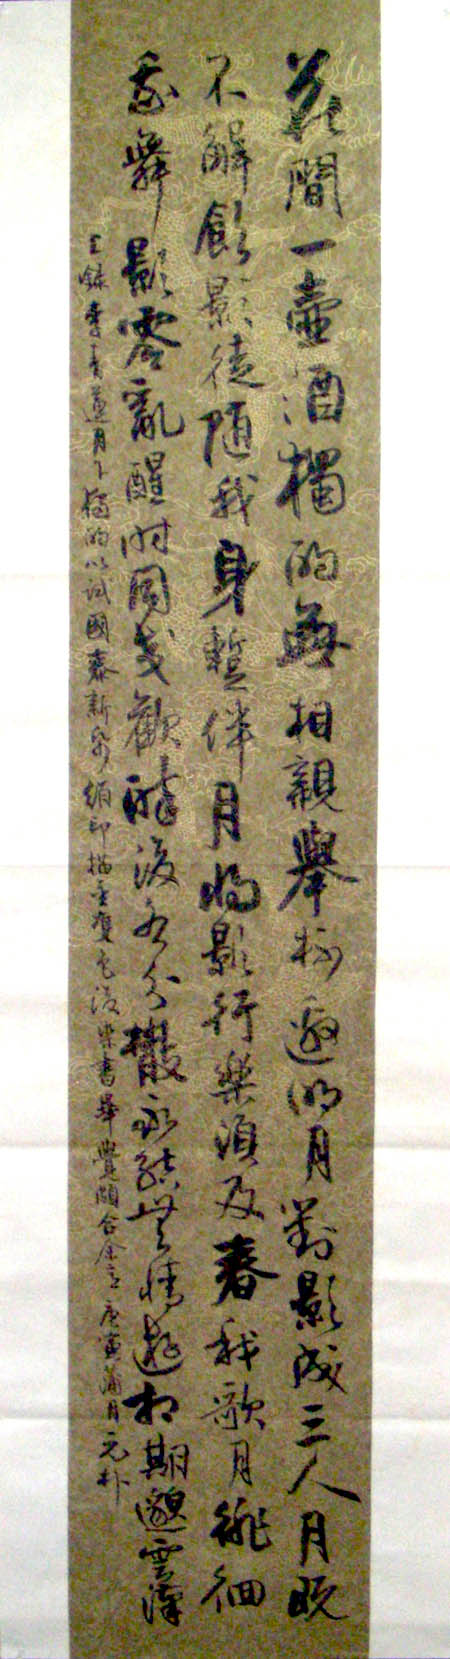 花間一壺酒獨酌無相親舉杯邀明月對影成三人月既
不解飲影徒随我身暫伴月將影行樂須及春我歌月徘徊
我舞影零亂醒時同交歡醉後各分散永結無情遊相期邈雲漢
錄李青蓮月下獨酌以試國泰新 絹印描金 色 書畢覺頗合余意庚寅蒲月元朴